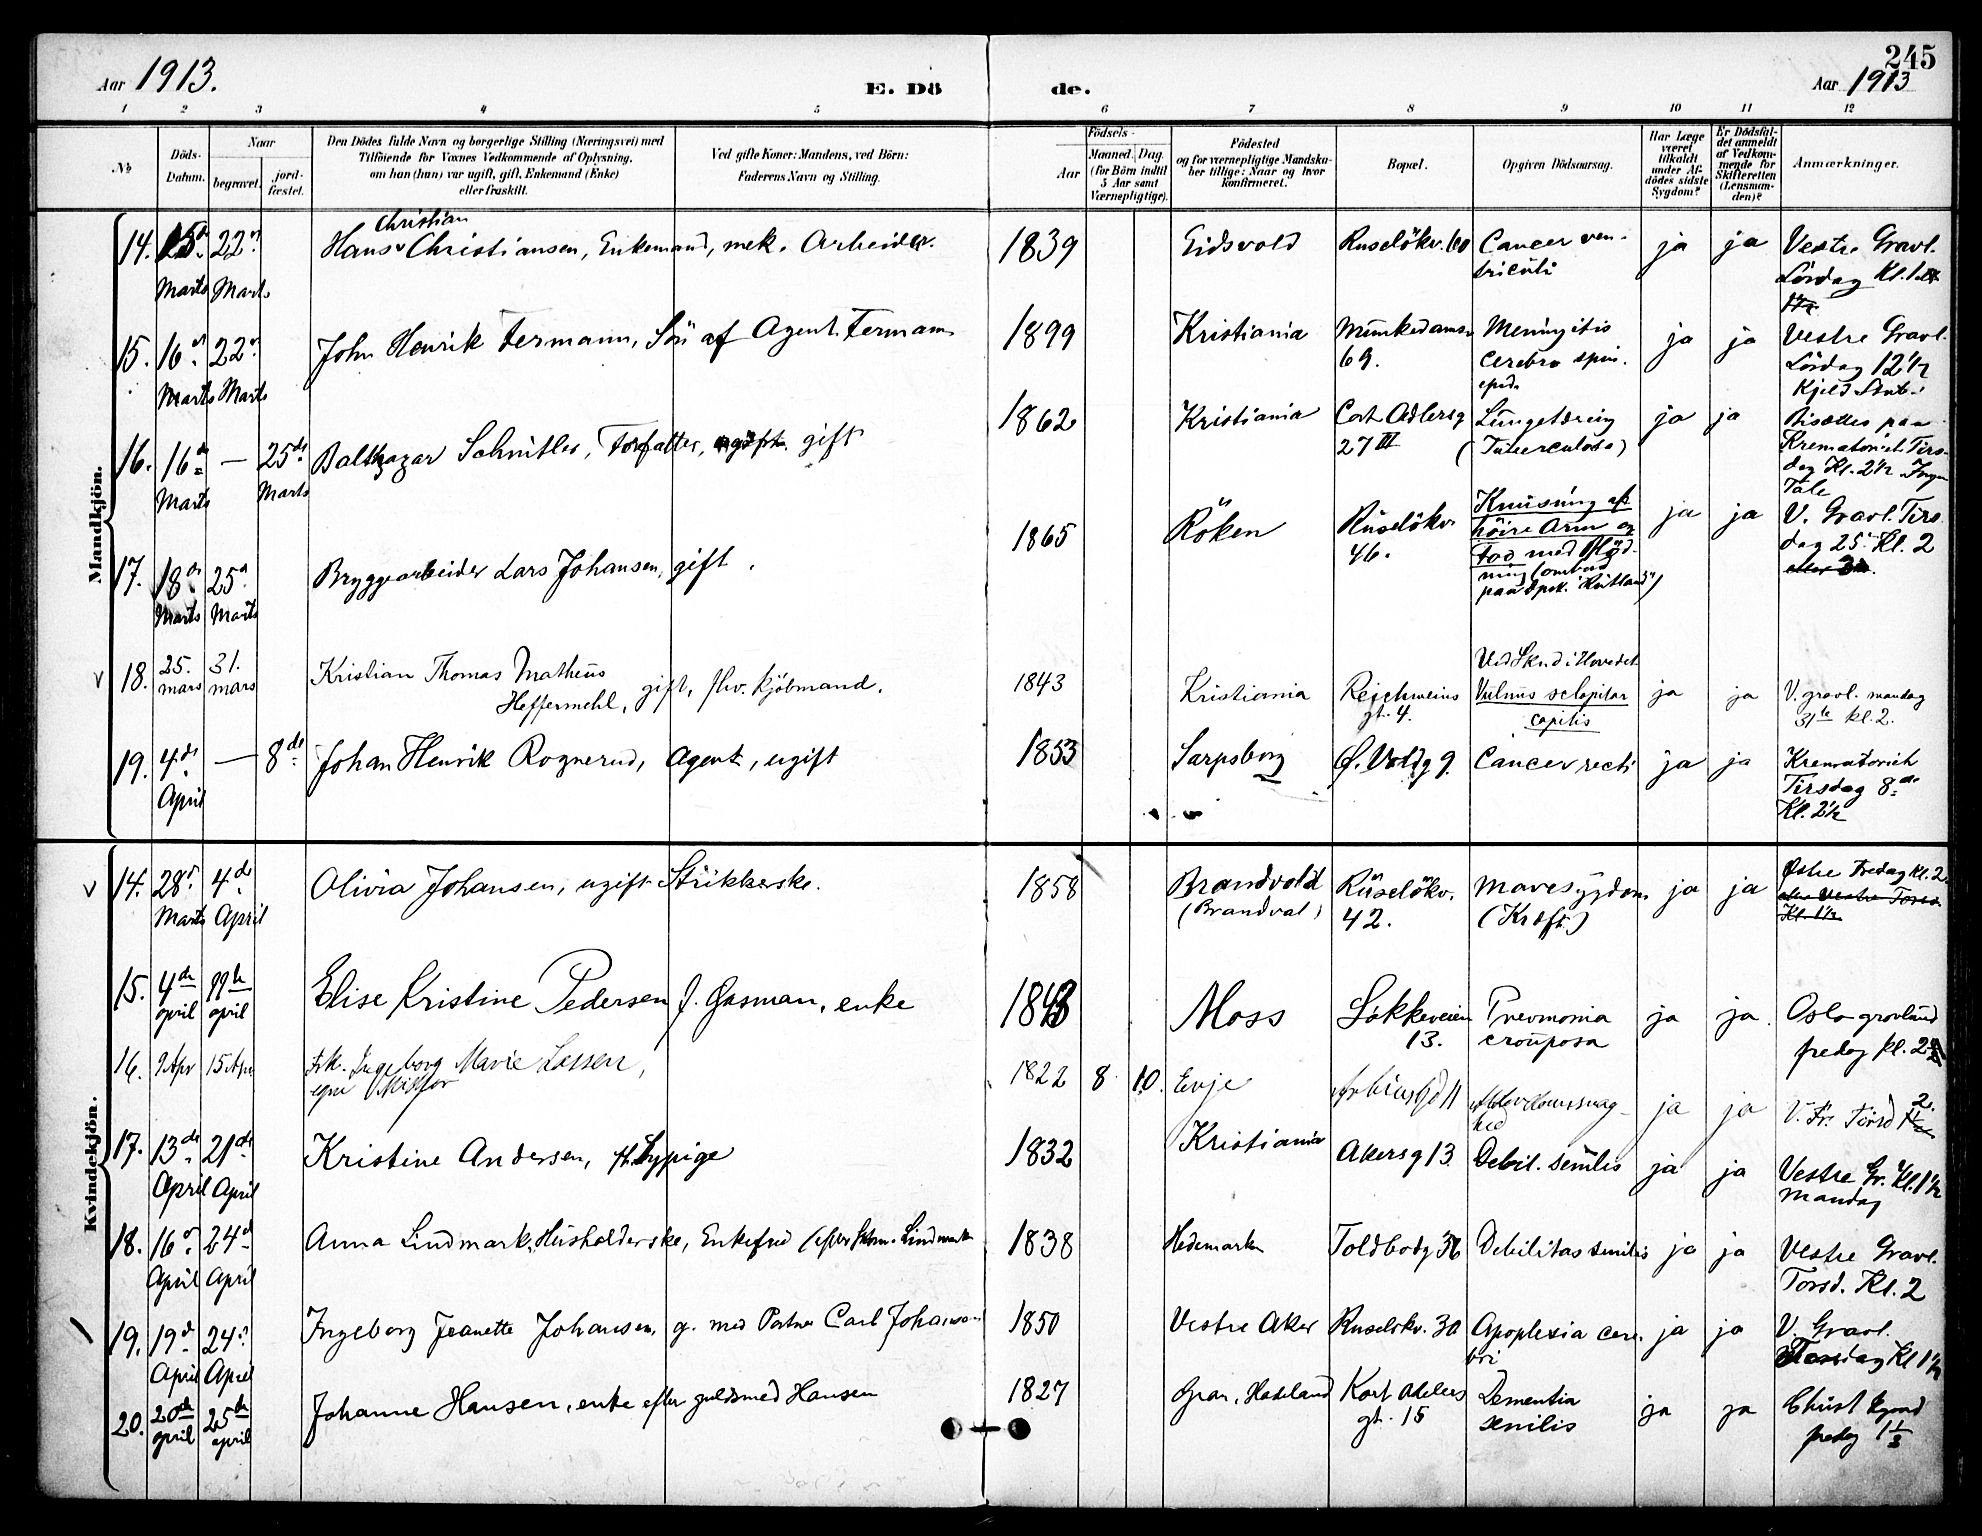 245
Aar 1913.
E. Dö de.
Aar 1913
1 2 3 4 5 6 7 8 9 10 11 12
No
Döds-Datum.
Naar
begravet.
jord-fæstet.
Den Dödes fulde Navn og borgerlige Stilling (Næringsvei) med
Tilföiende for Voxnes Vedkommende af Oplysning,
om han (hun) var ugift, gift, Enkemand (Enke)
eller fraskilt.
Ved gifte Koner: Mandens, ved Börn:
Faderens Navn og Stilling.
Födsels-
Aar
Maaned. Dag.
(for Börn indtil
5 Aar samt
Værnepligtige).
Födested
og for værnepligtige Mandska-
ber tillige: Naar og hvor
konfirmeret.
Bopæl.
Opgiven Dödsaarsag.
Har Læge
været
tilkaldt
under Af-
dödes sidste
Sygdom?
Er Dödsfal-
det anmeldt
af Vedkom-
mende for
Skifteretten
(Lensman-
den)?
Anmærkninger.
Mandkjön.
14. 15 Marts 22 Marts
Christian
Hans Christiansen, Enkemand, mek. Arbeider.
1839 Eidsvold Ruselökv. 60 Cancer ven-
triculi
ja ja Vestre Gravl.
Lördag Kl. 1
15. 16 Marts 22 Marts
John Henrik Fermann, Sön af Agent Fermann
1899 Kristiania Munkedamsv 69. Meningitis
cerebro spin.
epid.
ja ja Vestre Gravl.
Lördag 12½
Kjeld Stub
16. 16de Marts — 25de Marts
Balthazar Schnitler, Forfatter, ugift gift
1862 Kristiania Cort Adlersg 27 III Lungetæring
(Tuberculose)
ja ja Bisættes paa
Krematoriet Tirs-
dag Kl. 2½ Ingen
Tale
17. 18de Marts 25de Marts
Bryggearbeider Lars Johansen, gift.
1865 Röken Ruselökv. 46. Knusning af
höire Arm og
Fod med Blöd-
ning (ombord
paa Dpsk.
ja ja V. Gravl. Tirs
dag 25. Kl. 2
v 18. 25. mars 31. mars
Kristian Thomas Matheus
Heffermehl, gift, fhv. kjöbmand.
1843 Kristiania Reichweins gt. 4. Ved Skud i Hovedet
Vulnus sclopitar
capitis
ja ja V. gravl. mandag
31te kl. 2.
19. 4de April — 8de
Johan Henrik Rognerud, Agent, ugift
1853 Sarpsborg Ø. Voldg 9. Cancer recti ja ja Krematoriet
Tirsdag 8de
Kl. 2½
Kvindekjön.
v 14. 28 Marts 4de April
Olivia Johansen, ugift Strikkerske.
1858 Brandvold
(Brandval)
Ruselökv. 42. Mavesygdom
(Kræft)
ja ja Østre Fredag Kl. 2
eller Vestre Torsd
Kl. 1½
15. 4de april 11te april
Elise Kristine Pedersen f. Gasman, enke
1843 Moss Løkkeveien 13. Pnevmonia
crouposa
ja ja. Oslo gravlund
fredag kl. 2
16. 9 Apr 15 Apr
Frk. Ingeborg Marie Lassen,
1822 8 10. Evje Alderdomssvag-
hed
ja ja V. Fr. Torsd 2.
17. 13de April 21de April
Kristine Andersen, fhv. Sypige
1832 Kristiania Akersg 13. Debil. senilis ja ja Vestre Gr. Kl. 1½
Mandag
18. 16 April 24 April
Anna Lindmark, Husholderske, Enkefru (efter Lindmark
1838 Hedemarken Toldbodg 36 Debilitas senilis ja ja Vestre Gravl.
Torsd. Kl. 2
19. 19 April 24 April
Ingeborg Jeanette Johansen, g. med Carl Johansen
1850 Vestre Aker Ruselökv. 30 Apoplexia cere-
bri
ja ja V. Gravl.
Torsdag Kl 1½
20. 20de april 25de april
Johanne Hansen, enke efter guldsmed Hansen
1827 Gran, Hadeland Kort Adelers
gt. 15
Dementia
senilis
ja ja Christ kgaard
fredag 1½